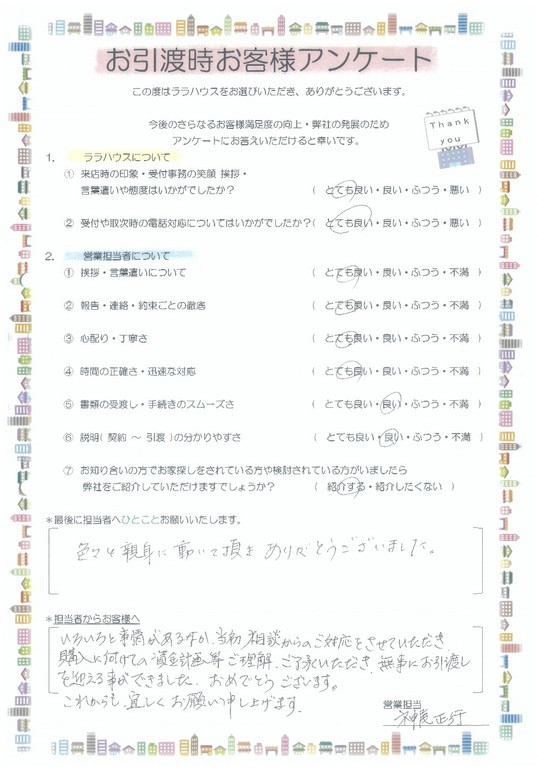 お引渡時お客様アンケート
この度はララハウスをお選びいただき、ありがとうございます。
今後のさらなるお客様満足度の向上・弊社の発展のため
アンケートにお答えいただけると幸いです。
Thank
you
1. ララハウスについて
① 来店時の印象・受付事務の笑顔 挨拶・
言葉遣いや態度はいかがでしたか? ( とても良い・良い・ふつう・悪い )
② 受付や取次時の電話対応についてはいかがでしたか? ( とても良い・良い・ふつう・悪い )
2. 営業担当者について
① 挨拶・言葉遣いについて ( とても良い・良い・ふつう・不満 )
② 報告・連絡・約束ごとの徹底 ( とても良い・良い・ふつう・不満 )
③ 心配り・丁寧さ ( とても良い・良い・ふつう・不満 )
④ 時間の正確さ・迅速な対応 ( とても良い・良い・ふつう・不満 )
⑤ 書類の受渡し・手続きのスムーズさ ( とても良い・良い・ふつう・不満 )
⑥ 説明( 契約 ～ 引渡 )の分かりやすさ ( とても良い・良い・ふつう・不満 )
⑦ お知り合いの方でお家探しをされている方や検討されている方がいましたら
弊社をご紹介していただけますでしょうか? ( 紹介する・紹介したくない )
*最後に担当者へひとことお願いいたします。
色々と親身に動いて頂き ありがとうございました。
*担当者からお客様へ
いろいろと事情がある中が、当初 相談からのご対応をさせていただき、
購入に向けての資金計画等ご理解、ご了承いただき、無事にお引渡し
を迎える事ができました。おめでとうございます。
これからも、宜しくお願い申し上げます。
営業担当
正行